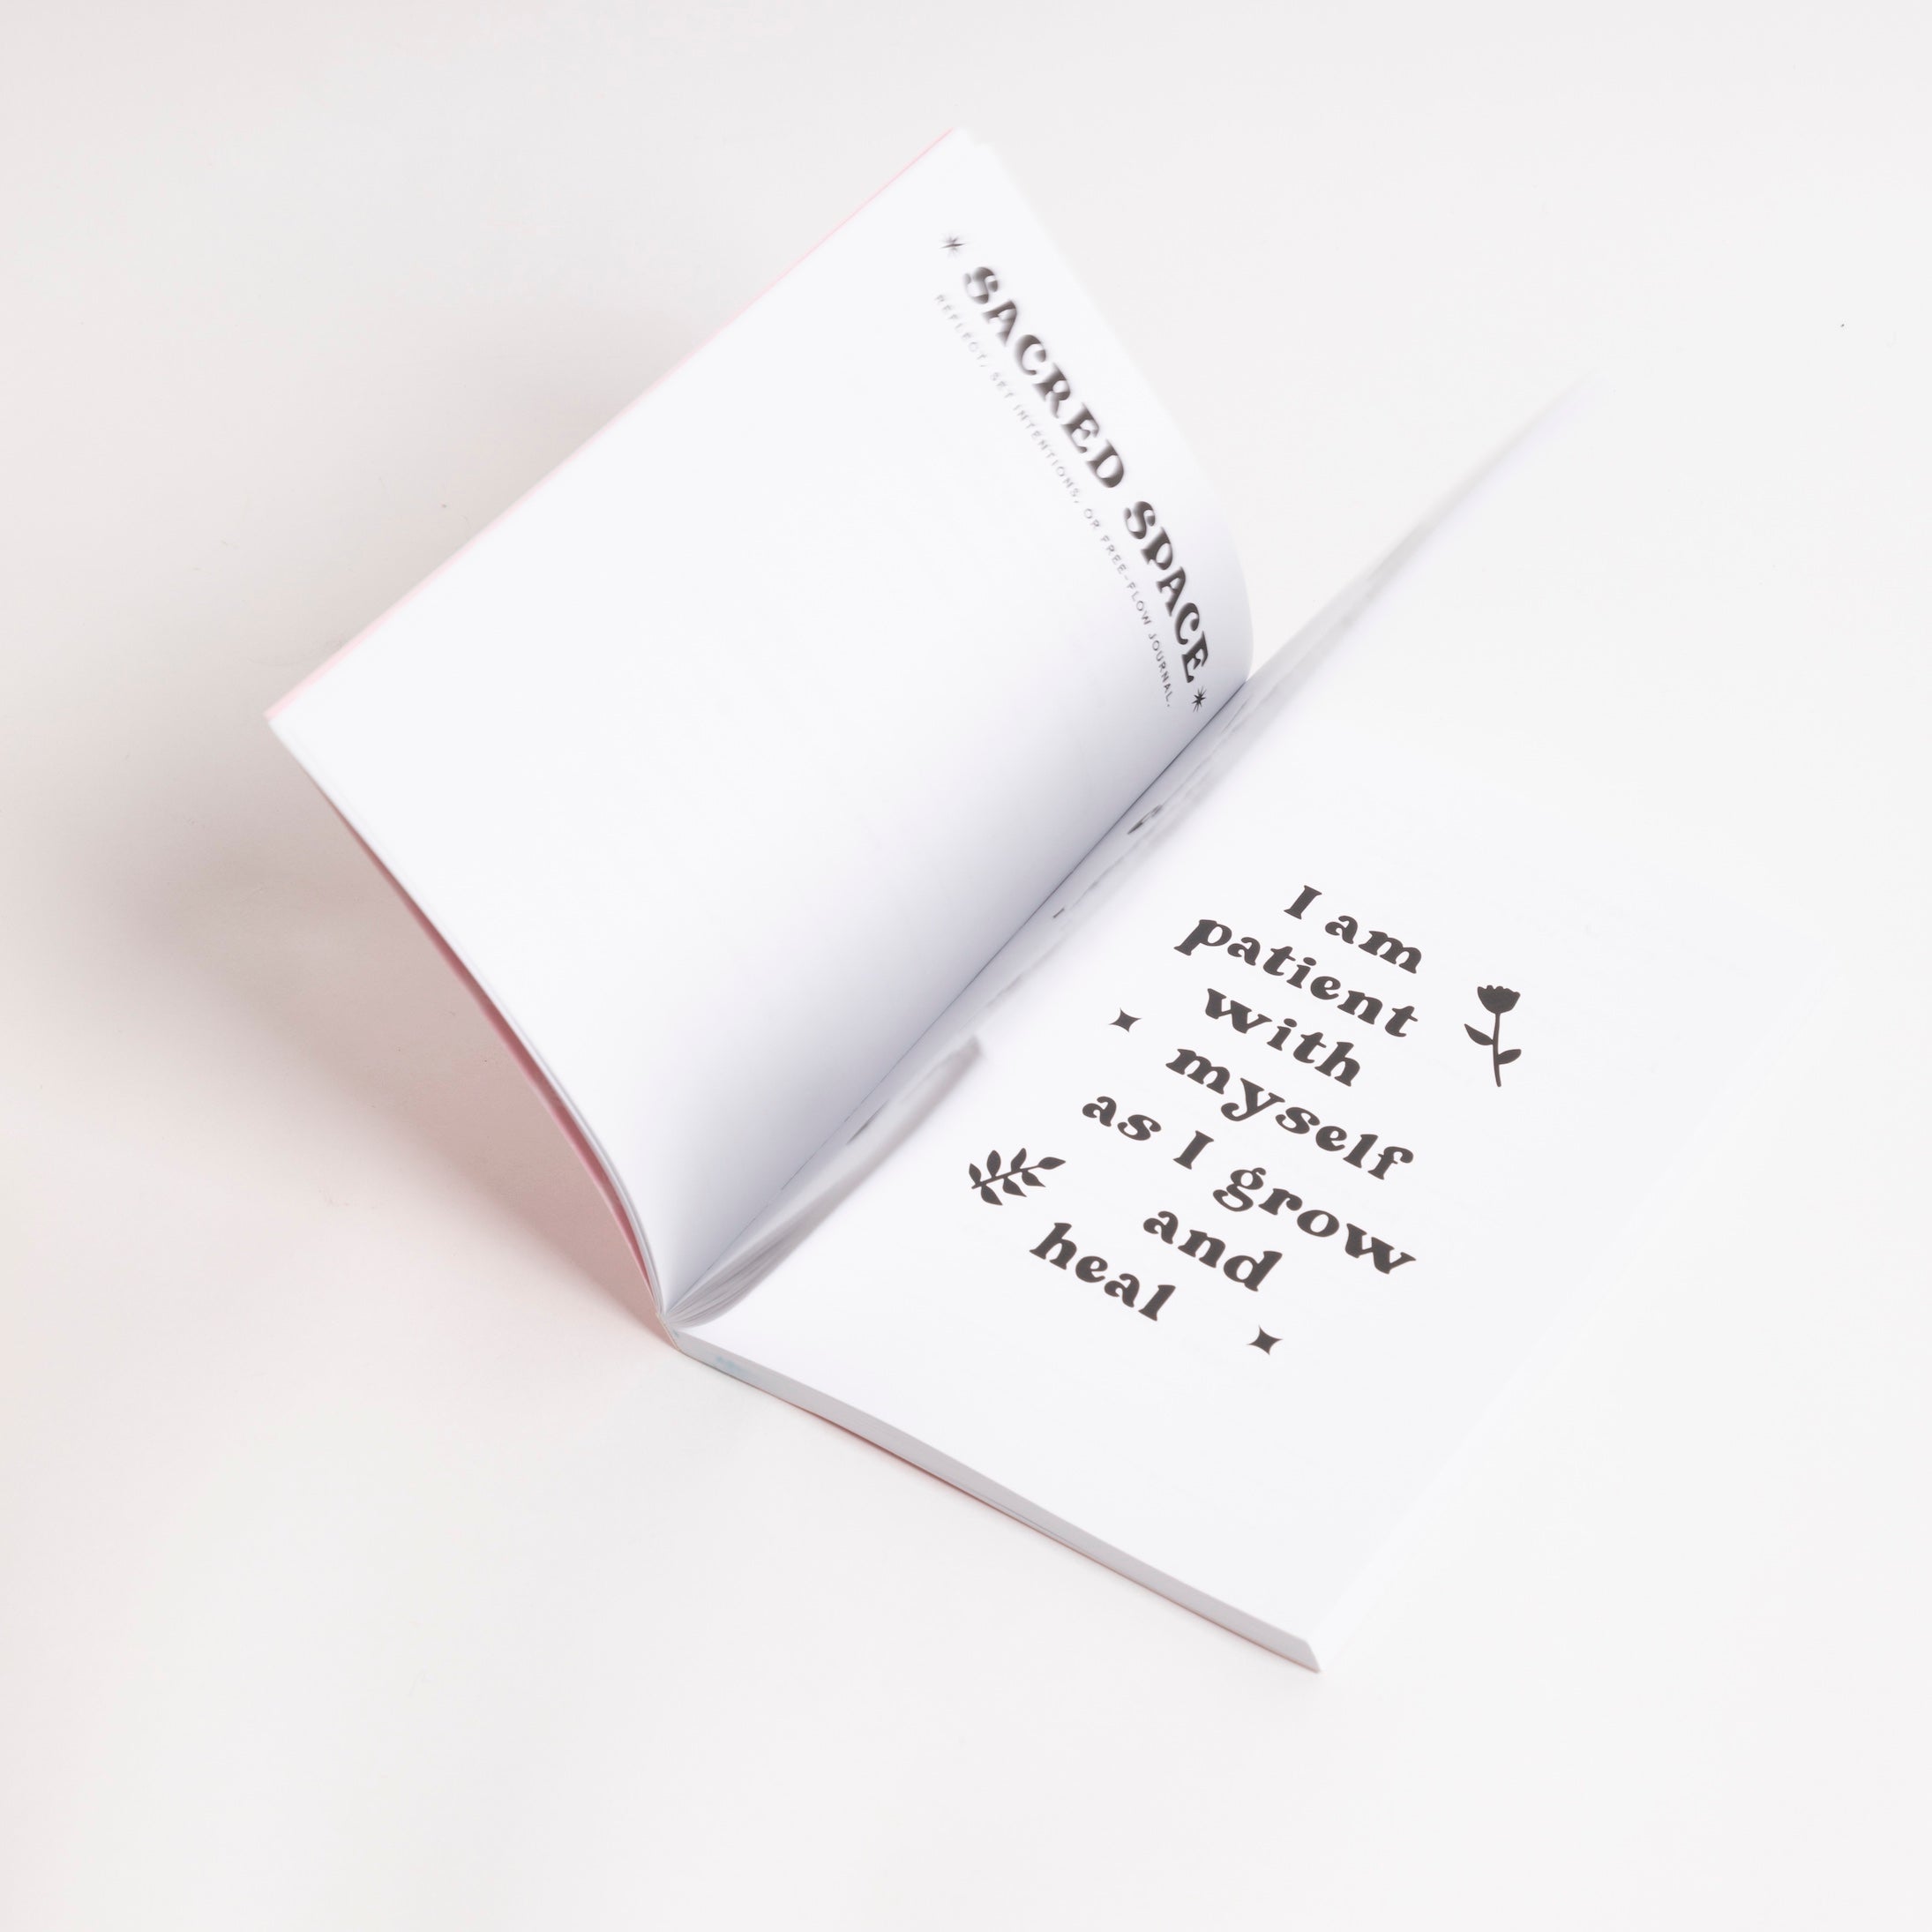 SACRED SPACE
REFLECT, SET INTENTIONS, OR FREE-FLOW JOURNAL.
I am
patient
with
myself
as I grow
and
heal